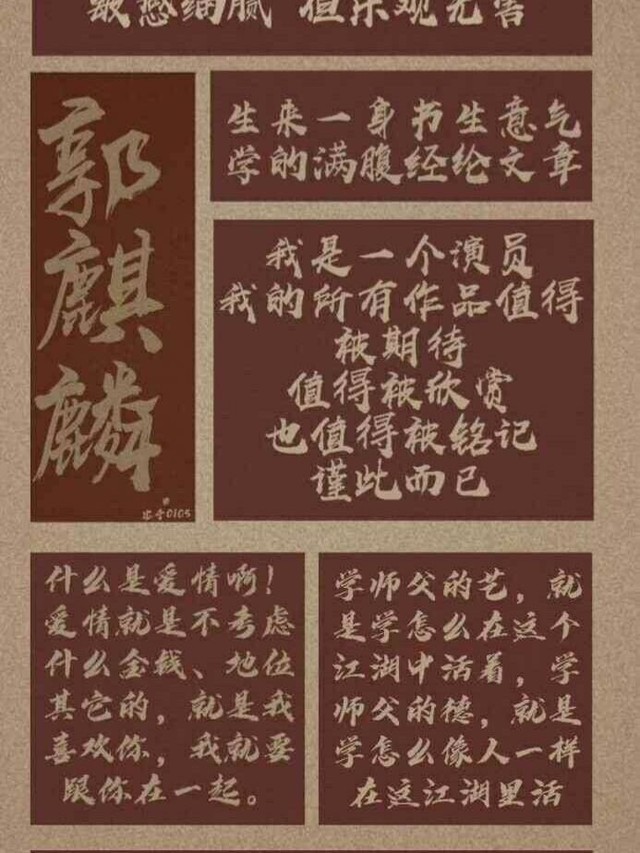 敏感细腻 但乐观无害
郭麒麟
生来一身书生意气
学的满腹经纶文章
我是一个演员
我的所有作品值得
被期待
值得被欣赏
也值得被铭记
谨此而已
什么是爱情啊！
爱情就是不考虑
什么金钱、地位
其它的，就是我
喜欢你，我就要
跟你在一起。
学师父的艺，就
是学怎么在这个
江湖中活着，学
师父的德，就是
学怎么像人一样
在这江湖里活